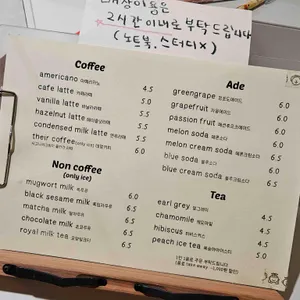 매장이용은
2시간 이내로 부탁드립니다
(노트북, 스터디 X)
Coffee
americano 아메리카노 4.5
cafe latte 카페라떼 5.0
vanilla latte 바닐라라떼 5.5
hazelnut latte 헤이즐넛라떼 5.5
condensed milk latte 연유라떼 5.5
their coffee (only ice) 6.5
Non coffee
(only ice)
mugwort milk 쑥우유 6.0
black sesame milk 흑임자우유 6.0
matcha milk 말차우유 6.5
chocolate milk 초코우유 6.5
royal milk tea 로얄밀크티 6.5
Ade
greengrape 청포도에이드 6.0
grapefruit 자몽에이드 6.0
passion fruit 패션후르츠에이드 6.0
melon soda 메론소다 6.0
melon cream soda 메론크림소다 6.5
blue soda 블루소다 6.0
blue cream soda 블루크림소다 6.5
Tea
earl grey 얼그레이 4.5
chamomile 캐모마일 4.5
hibiscus 히비스커스 4.5
peach ice tea 복숭아아이스티 5.0
1인 1음료 주문 부탁드립니다
(음료 take away -1,000원 할인)